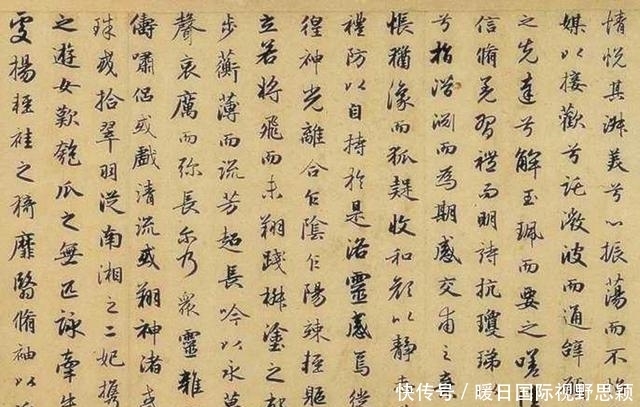 情悅其淑美兮心振蕩而不怡
媒以接歡兮託微波而通辭
之先達兮解玉珮而要之嗟
信脩羌習禮而明詩抗瓊珶
兮指潛淵而為期感交甫之棄
悵猶豫而狐疑收和顏以靜志
禮防以自持於是洛靈感焉徙
徨神光離合乍陰乍陽竦輕軀
立若將飛而未翔踐椒塗之郁
步蘅薄而流芳超長吟以永慕
聲哀厲而彌長爾乃眾靈雜
儔嘯侶或戲清流或翔神渚或
珠或拾翠羽從南湘之二妃攜
之遊女歎匏瓜之無匹詠牽牛
雯揚輕袿之猗靡翳脩袖以
快传号／暖日国际视野思颖